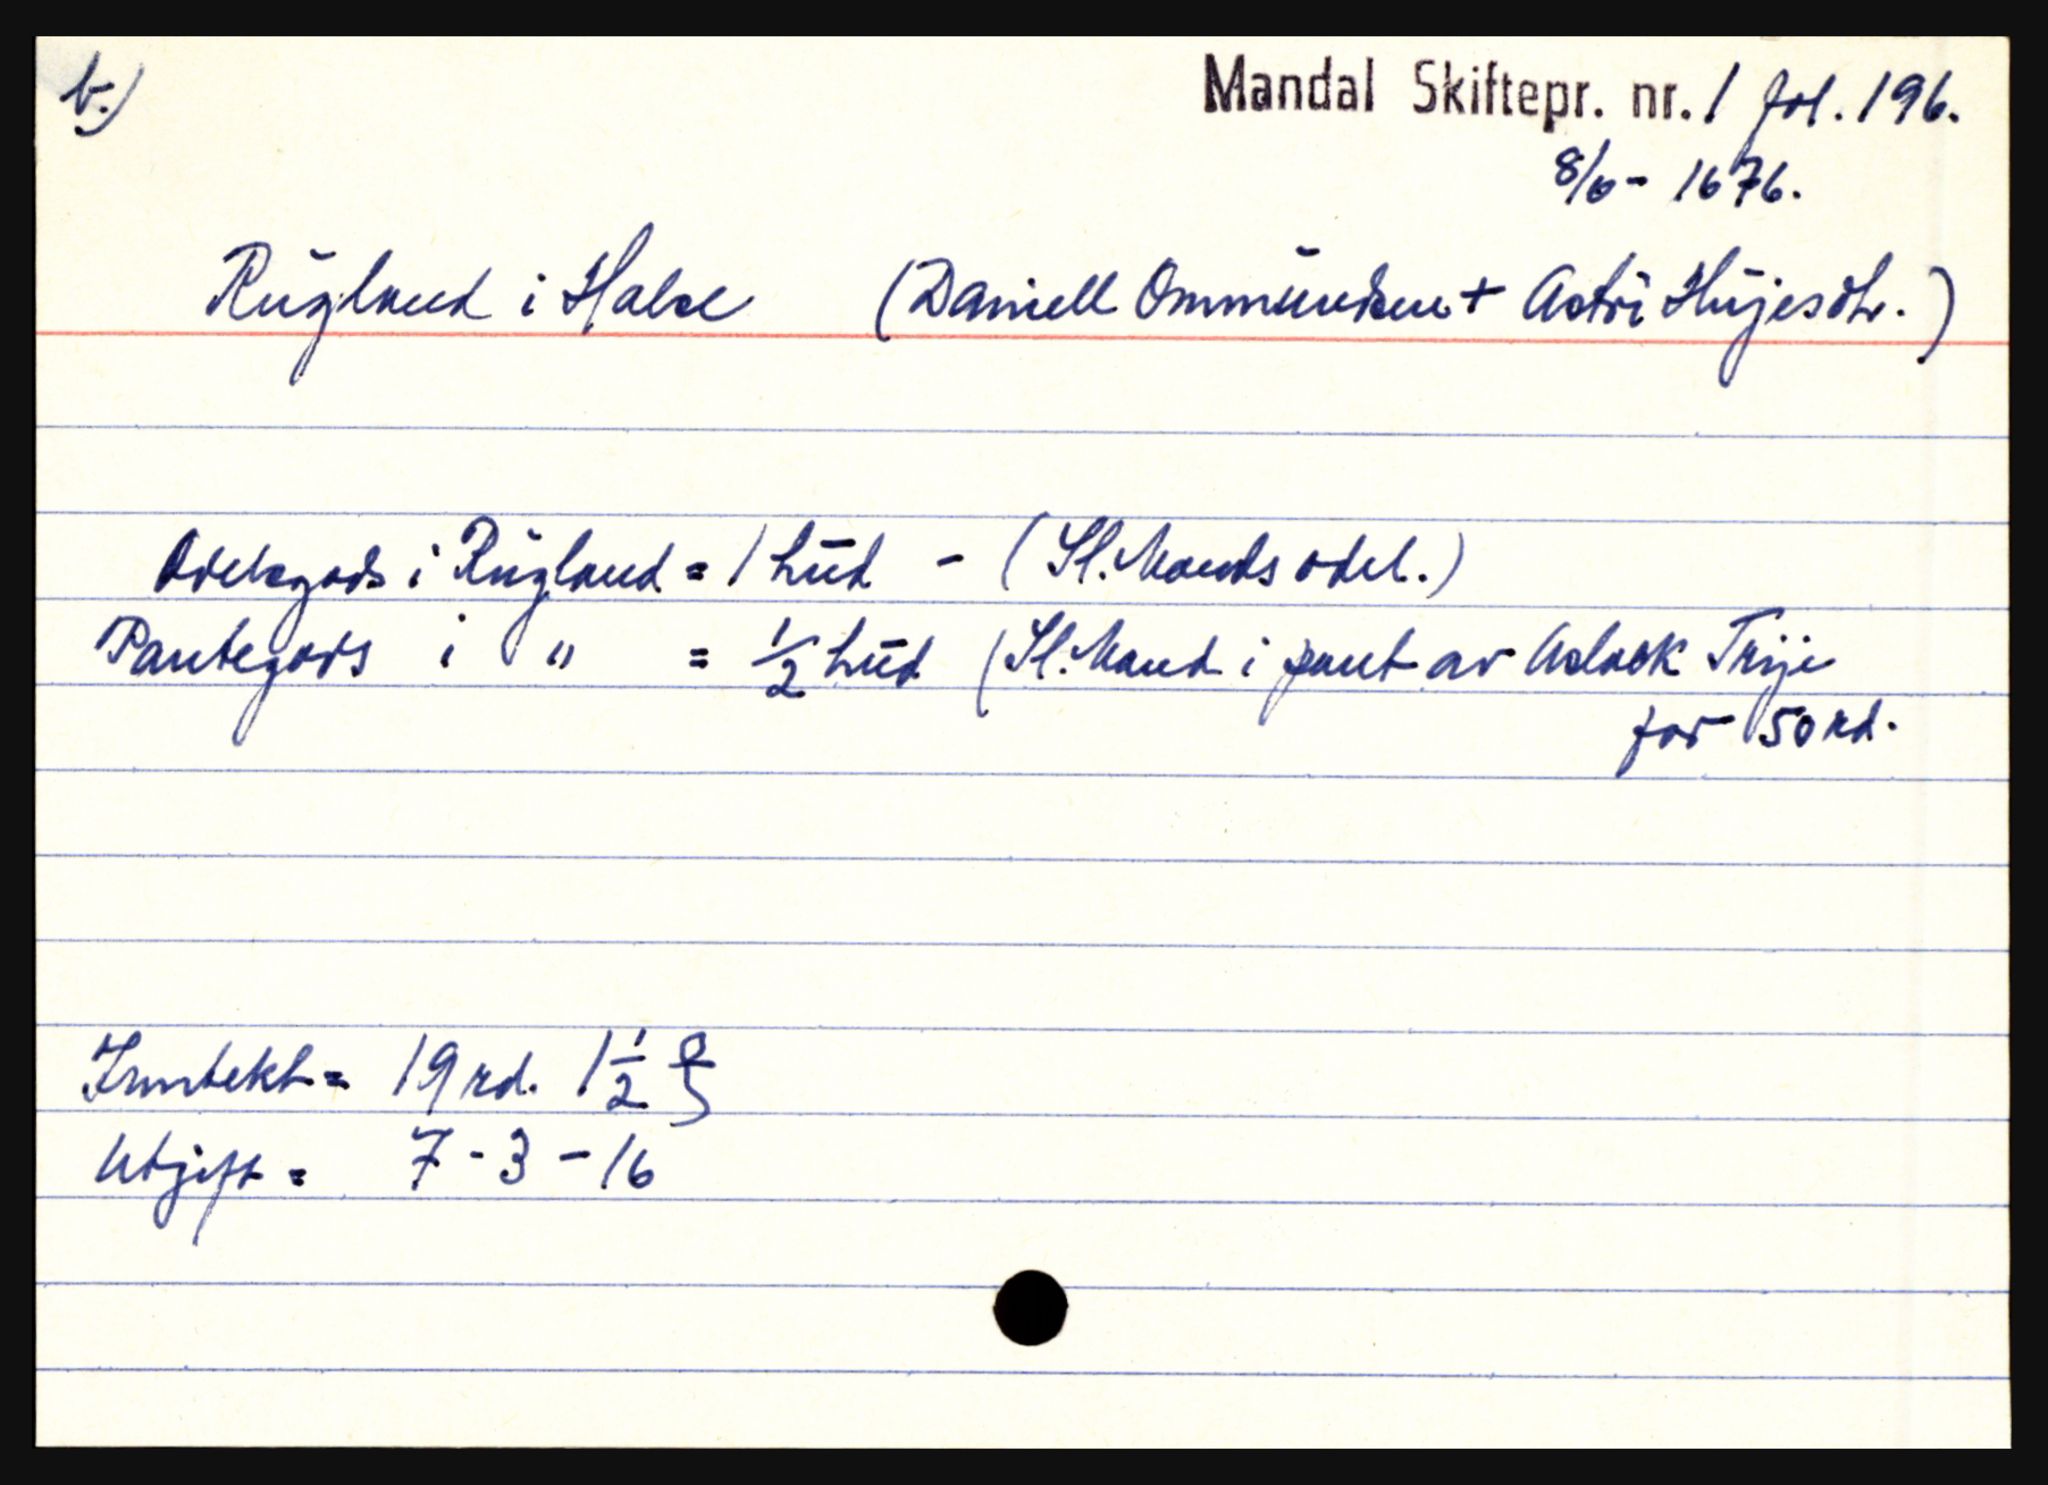 b.)
Mandal Skiftepr. nr. 1 fol. 196.
8/6 - 1676.
Rugland i Halse (Daniell Ommundsen + Astri Hujesdtr.)
Odelsgods i Rugland = 1 hud - (Sl. Mands odel.)
Pantegods i " = 1/2 hud (Sl. Mand i pant av Aslack Trije
for 50 rd.
Inntekt = 19 rd. 1 1/2
Utgift = 7 - 3 - 16